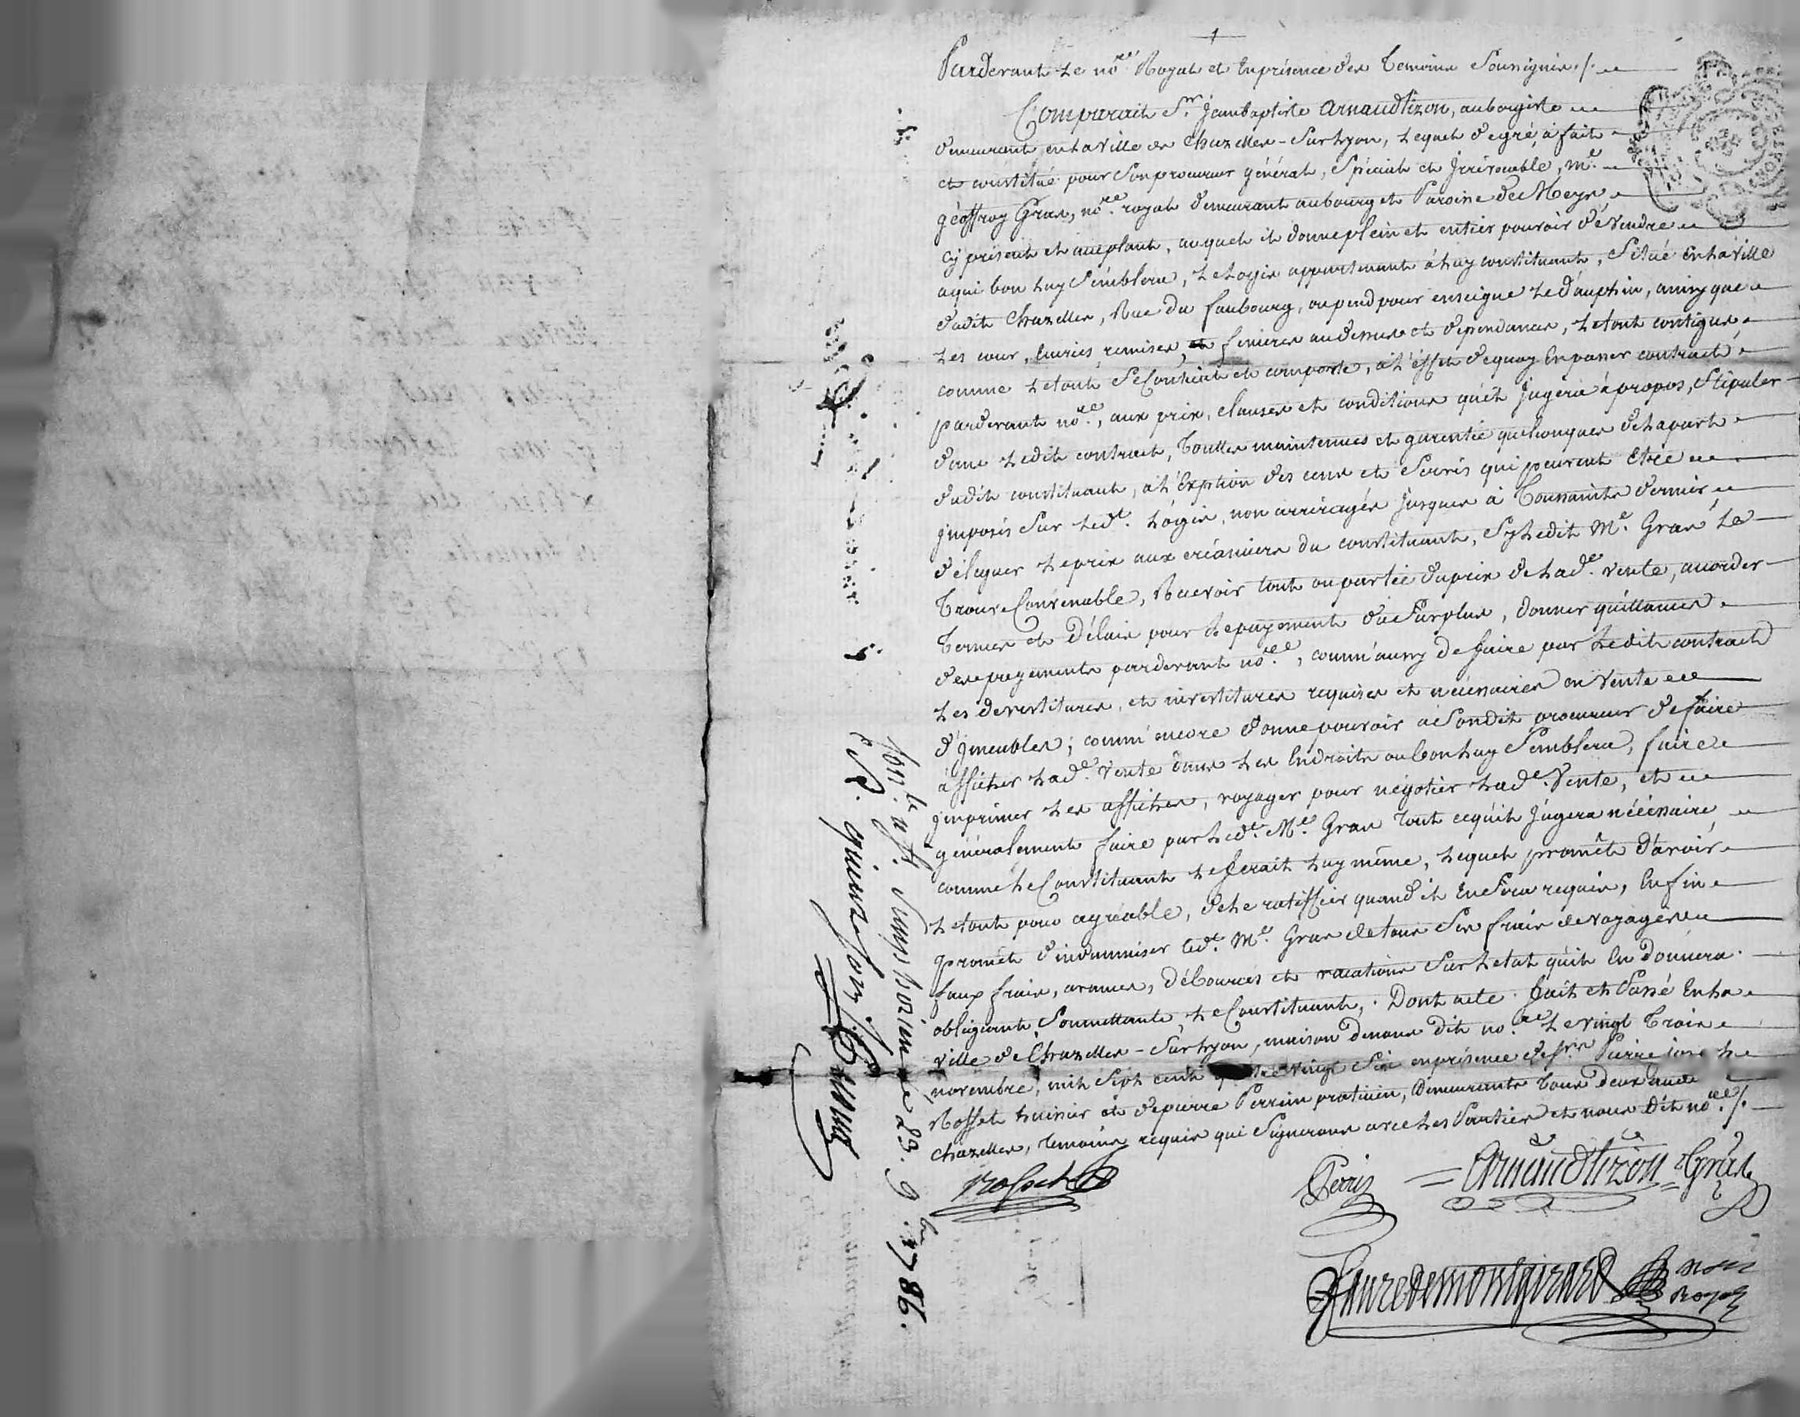 Pardevant le no.re Royal et Enprésence des Temoins Soussignés ./.
Comparait Sr. Jeanbaptiste Arnaudtizon, aubergiste
demeurant en la Ville de Chazelles-Sur Lyon, Lequel de gré, à fait
et constitué pour Son procureur général, Spécial et Jrrévocable, Me.
géoffroy Gras, no.re royal demeurant au bourg et Paroisse de Meys,
cy présent et acceptant, auquel il donne plein et entier pouvoir de Vendre
a qui bon luy Semblera, Le Logis appartenant à luy constituant, Situé En la Ville
dudit Chazelles, Rue du faubourg, ou pend pour enseigne Le Dauphin, ainsy que
Les cour, Ecuries, remises, et fenieres au dessus et dependances, Le tout contigus
comme Le tout Se Contient et comporte, à l'éffet de quoy En passer contract
pardevant no.re, aux prix, clauses et conditions qu'il Jugéra à propos, Stipuler
dans Ledit contract, Touttes maintenues et garentie quelconques de la part
dudit constituant, à l'Exption des cens et Servis qui peuvent Etre
jmposés Sur Led.t Logis, non arréragés Jusques à Toussaints dernier,
déléguer Le prix aux créanciers du constituant, Sy Ledit Me. Gras Le
Trouve Convenable, Recevoir tout ou partie du prix de Lad.e Vente, accorder
Termes et Délais pour Le payement du Surplus, donner quittances
des payements pardevant no.re, comm'aussy de faire par Ledit contract
Les devestitures, et investitures requises et nécessaires en Vente
d'jmeubles; comm'encore donne pouvoir à Sondit procureur de faire
afficher Lad.e Vente dans Les Endroits ou bon luy Semblera, faire
jmprimer Les affiches, voyager pour négotier Lad.e Vente, et
généralement faire par Led.t Me. Gras Tout ce qu'il Jugera nécéssaire
comme Le Constituant Le ferait Luy même, Lequel promêt d'avoir
Le tout pour agréable, de Le ratiffier quand il En Sera requis, Enfin
promêt d'indemniser Led.t Me. Gras de tous Ses frais de voyages
faux frais, avances, débourcés et vacations Sur L'etat qu'il En donnera.
obligeant, Soumettant, Le Constituant, . Dont acte. fait et Passé En la
ville de Chazelles-Sur Lyon, maison de nous dit no.re Le vingt Trois
novembre, mil Sept cent quatre vingt Six en présence de Srs. Pierre
Rosset huissier et de pierre Perrin praticien, Demeurants Tous deux audit
Chazelles, Temoins requis qui Signerons avec Les Parties et nous Dit no.re ./.
Rosset
Perrin
Arnaudtizon
Gras
fauredemontgirard
nore
Royal
Con.lé a St. Simphorien le 23. 9bre 1786.
R. quinze sols